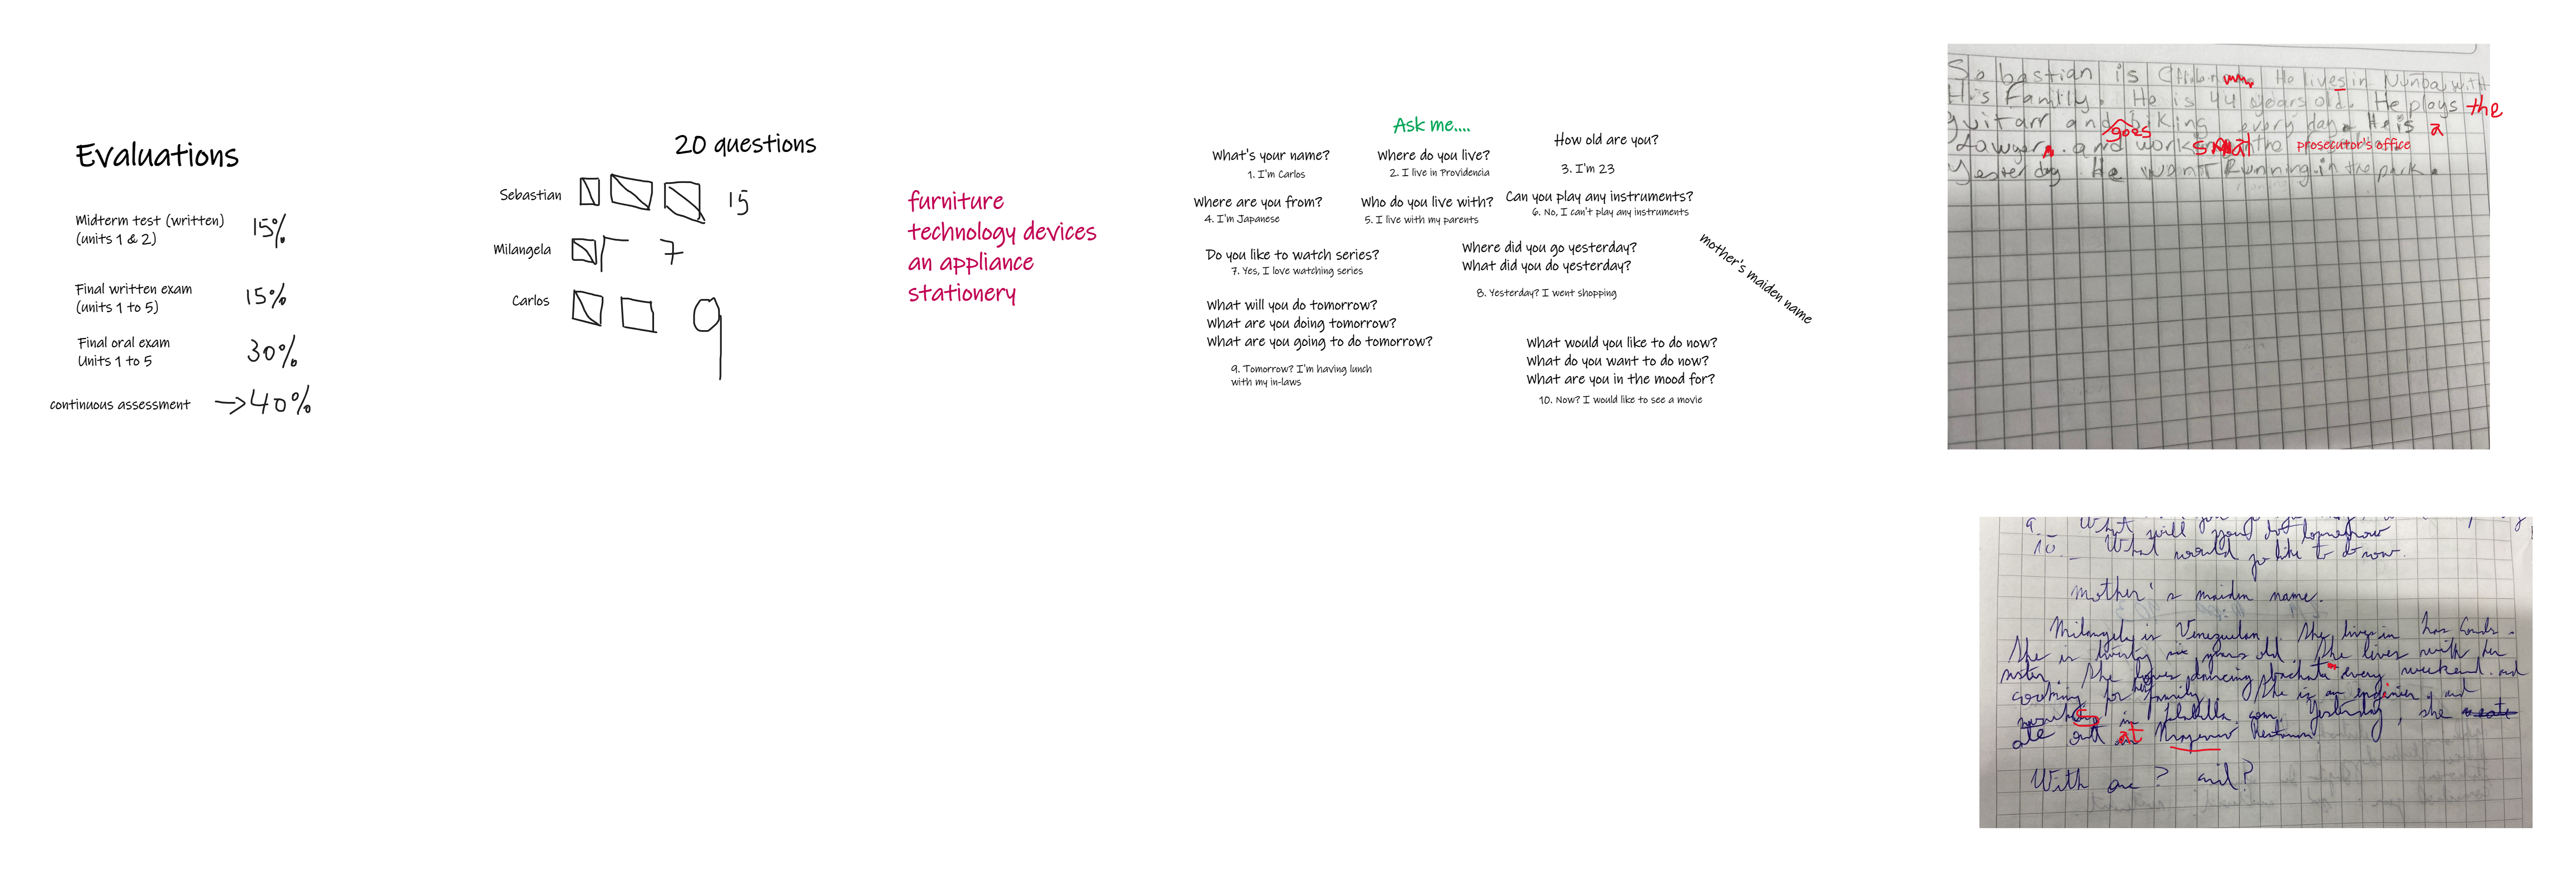 Evaluations
Midterm test (written)
(units 1 & 2)
15%
Final written exam
(units 1 to 5)
15%
Final oral exam
Units 1 to 5
30%
continuous assessment
→40%
20 questions
Sebastian
15
Milangela
7
Carlos
9
furniture
technology devices
an appliance
stationery
Ask me....
What's your name?
1. I'm Carlos
Where do you live?
2. I live in Providencia
How old are you?
3. I'm 23
Where are you from?
4. I'm Japanese
Who do you live with?
5. I live with my parents
Can you play any instruments?
6. No, I can't play any instruments
Do you like to watch series?
7. Yes, I love watching series
Where did you go yesterday?
What did you do yesterday?
8. Yesterday? I went shopping
mother's maiden name
What will you do tomorrow?
What are you doing tomorrow?
What are you going to do tomorrow?
9. Tomorrow? I'm having lunch
with my in-laws
What would you like to do now?
What do you want to do now?
What are you in the mood for?
10. Now? I would like to see a movie
Sebastian is He lives in with
His Family. He is 44 years old. He plays the
guitarr and goes biking every day. He is a
Lawyer. and work at the prosecutor's office
Yesterday He went Running in the park.
9. What will you do tomorrow
10._ What would yo like to do now.
mother's maiden name.
Milangely is Venezuelan. She lives in
She is twenty six years old. She lives with her
sister. She loves dancing bachata every weekend and
cooking for her family. She is an engineer. and
in Yesterday, she
ate out at
With are?